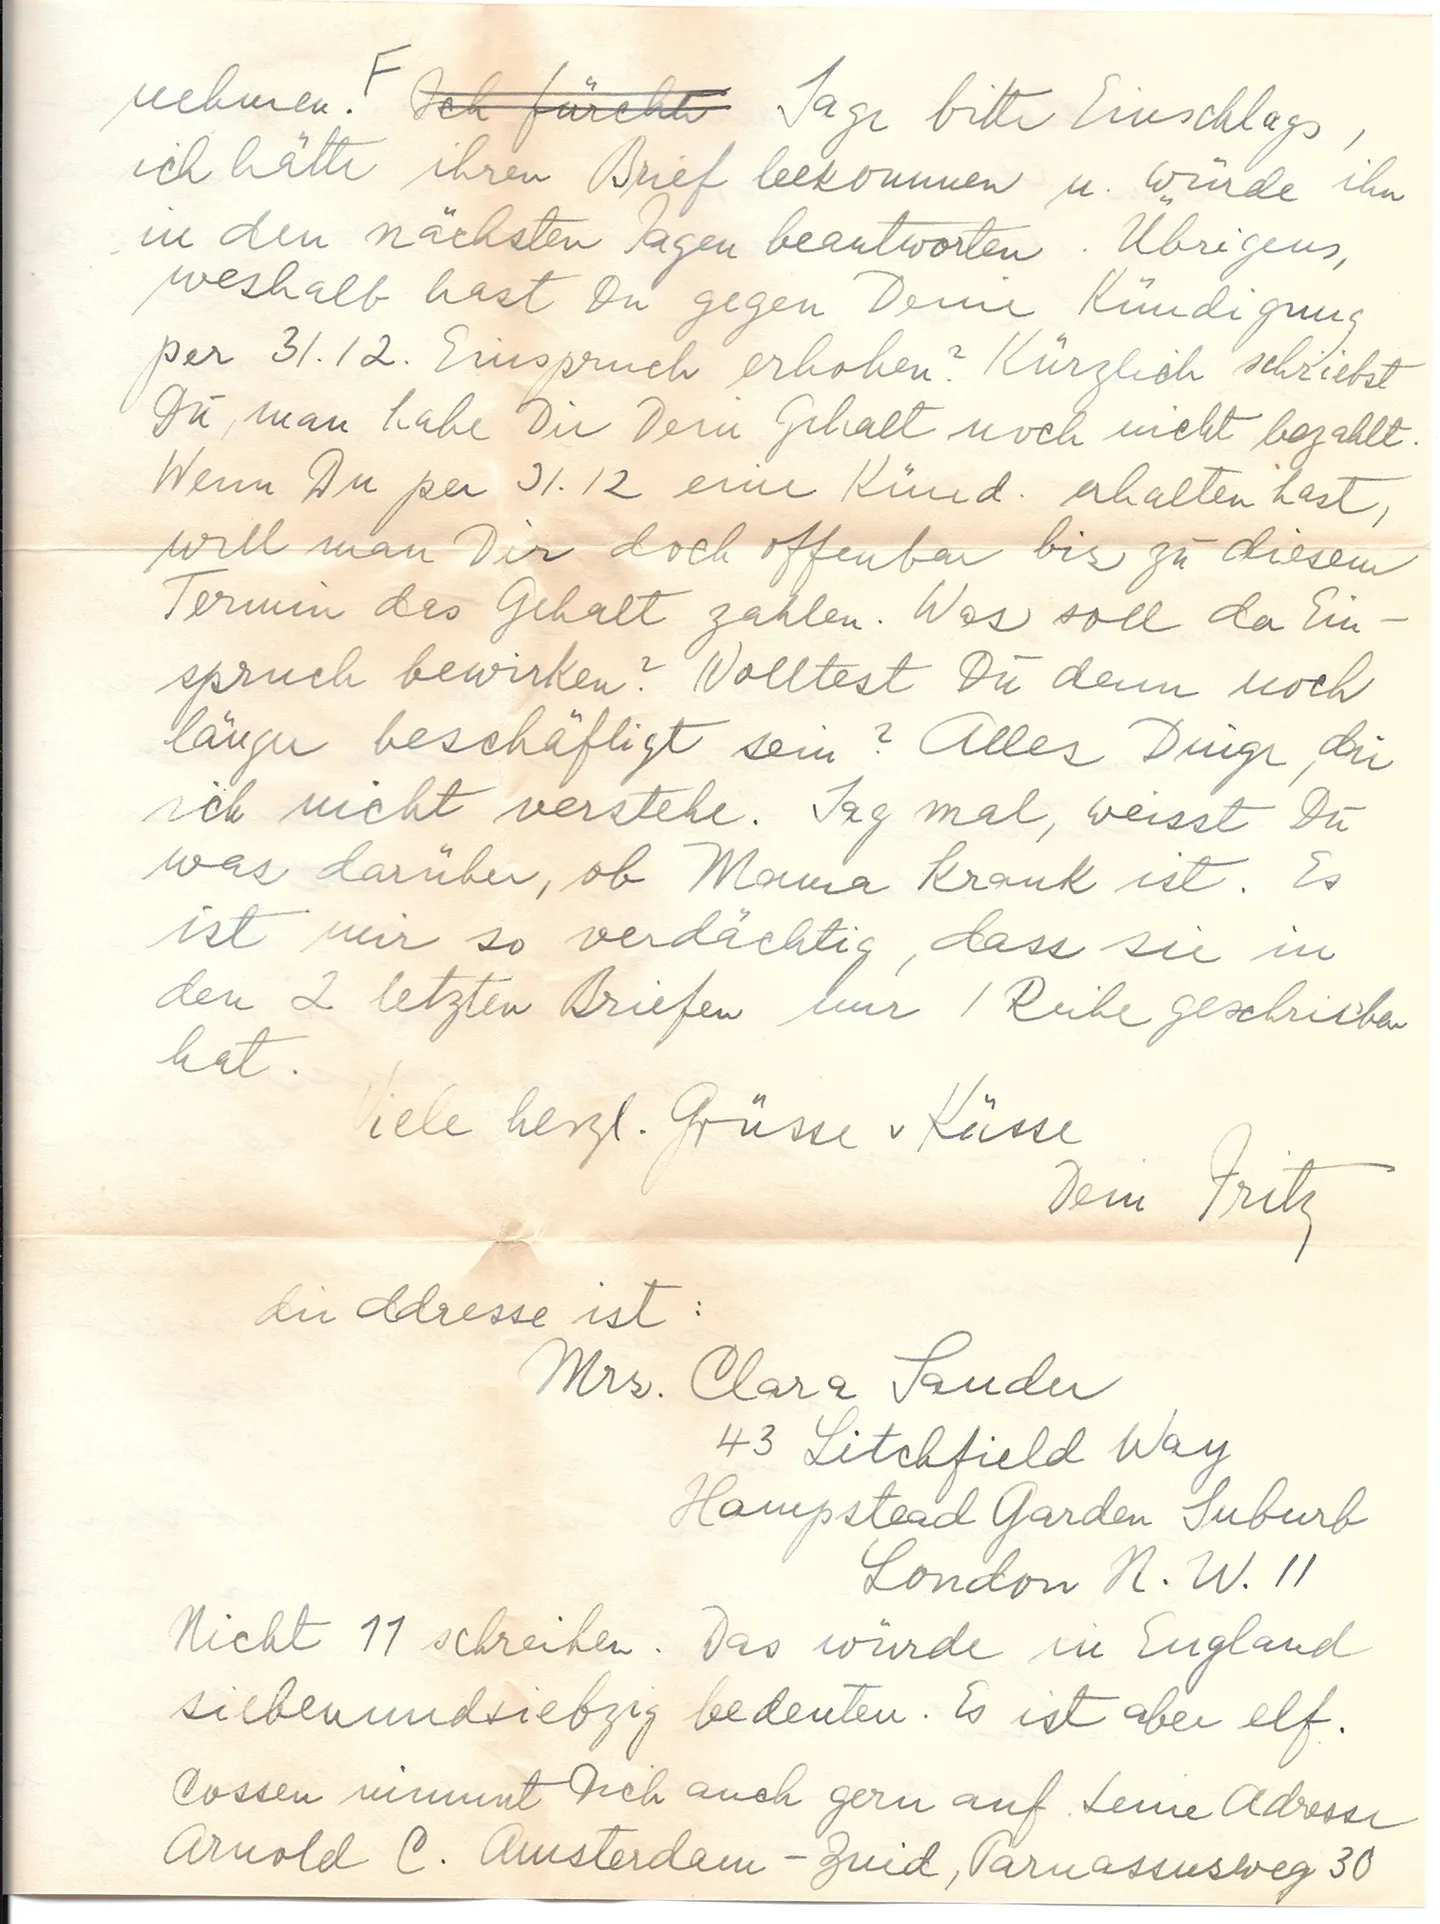 nehmen! F Ich fürchte Sage bitte Einschlags,
ich hätte ihren Brief bekommen u. würde ihn
in den nächsten Tagen beantworten. Übrigens,
weshalb hast Du gegen Deine Kündigung
per 31.12. Einspruch erhoben? Kürzlich schriebst
Du, man habe Dir Dein Gehalt noch nicht bezahlt.
Wenn Du per 31.12 eine Künd. erhalten hast,
will man Dir doch offenbar bis zu diesem
Termin das Gehalt zahlen. Was soll da Ein-
spruch bewirken? Wolltest Du denn noch
länger beschäftigt sein? Alles Dinge, die
ich nicht verstehe. Sag mal, weisst Du
was darüber, ob Mama krank ist. Es
ist mir so verdächtig, dass sie in
den 2 letzten Briefen nur 1 Reihe geschrieben
hat.
Viele herzl. Grüsse u Küsse
Dein Fritz
die Adresse ist:
Mrs. Clara Sander
43 Litchfield Way
Hampstead Garden Suburb
London N. W. 11
Nicht 11 schreiben. Das würde in England
siebenundsiebzig bedeuten. Es ist aber elf.
Cossen nimmt Dich auch gern auf. Seine Adresse
Arnold C. Amsterdam-Zuid, Parnassusweg 30